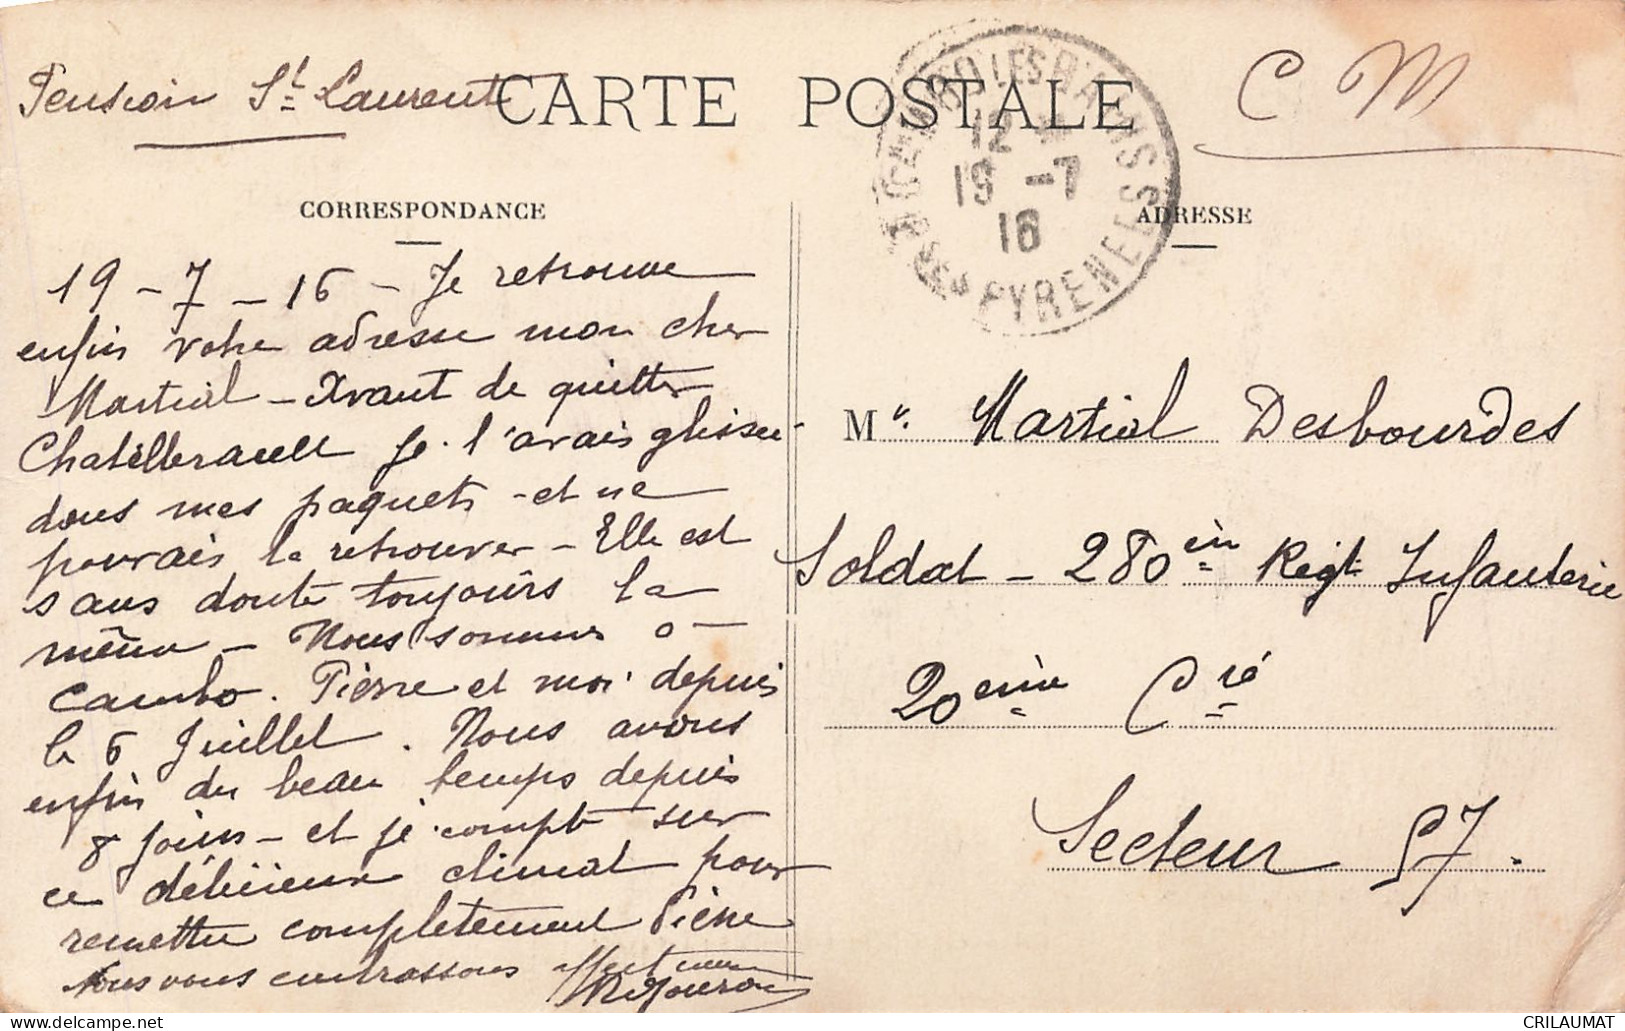 Pension St Laurent
CARTE POSTALE
C M
CAMBO LES BAINS
12
19 -7
16
BSES PYRENEES
CORRESPONDANCE
ADRESSE
19 - 7 - 16 - Je retrouve
enfin votre adresse mon cher
Martial - Avant de quitter
Chatellerault je l'avais glissée
dans mes paquets - et ne
pouvais la retrouver - Elle est
sans doute toujours la
même - Nous sommes à
Cambo. Pierre et moi depuis
le 6 Juillet. Nous avons
enfin du beau temps depuis
8 jours - et je compte sur
ce délicieux climat pour
remettre complètement Pierre
Nous vous embrassons
Mr. Martial Desbourdes
Soldat - 280ein Regt Infanterie
20ème Cie
Secteur 57.
CRILAUMAT